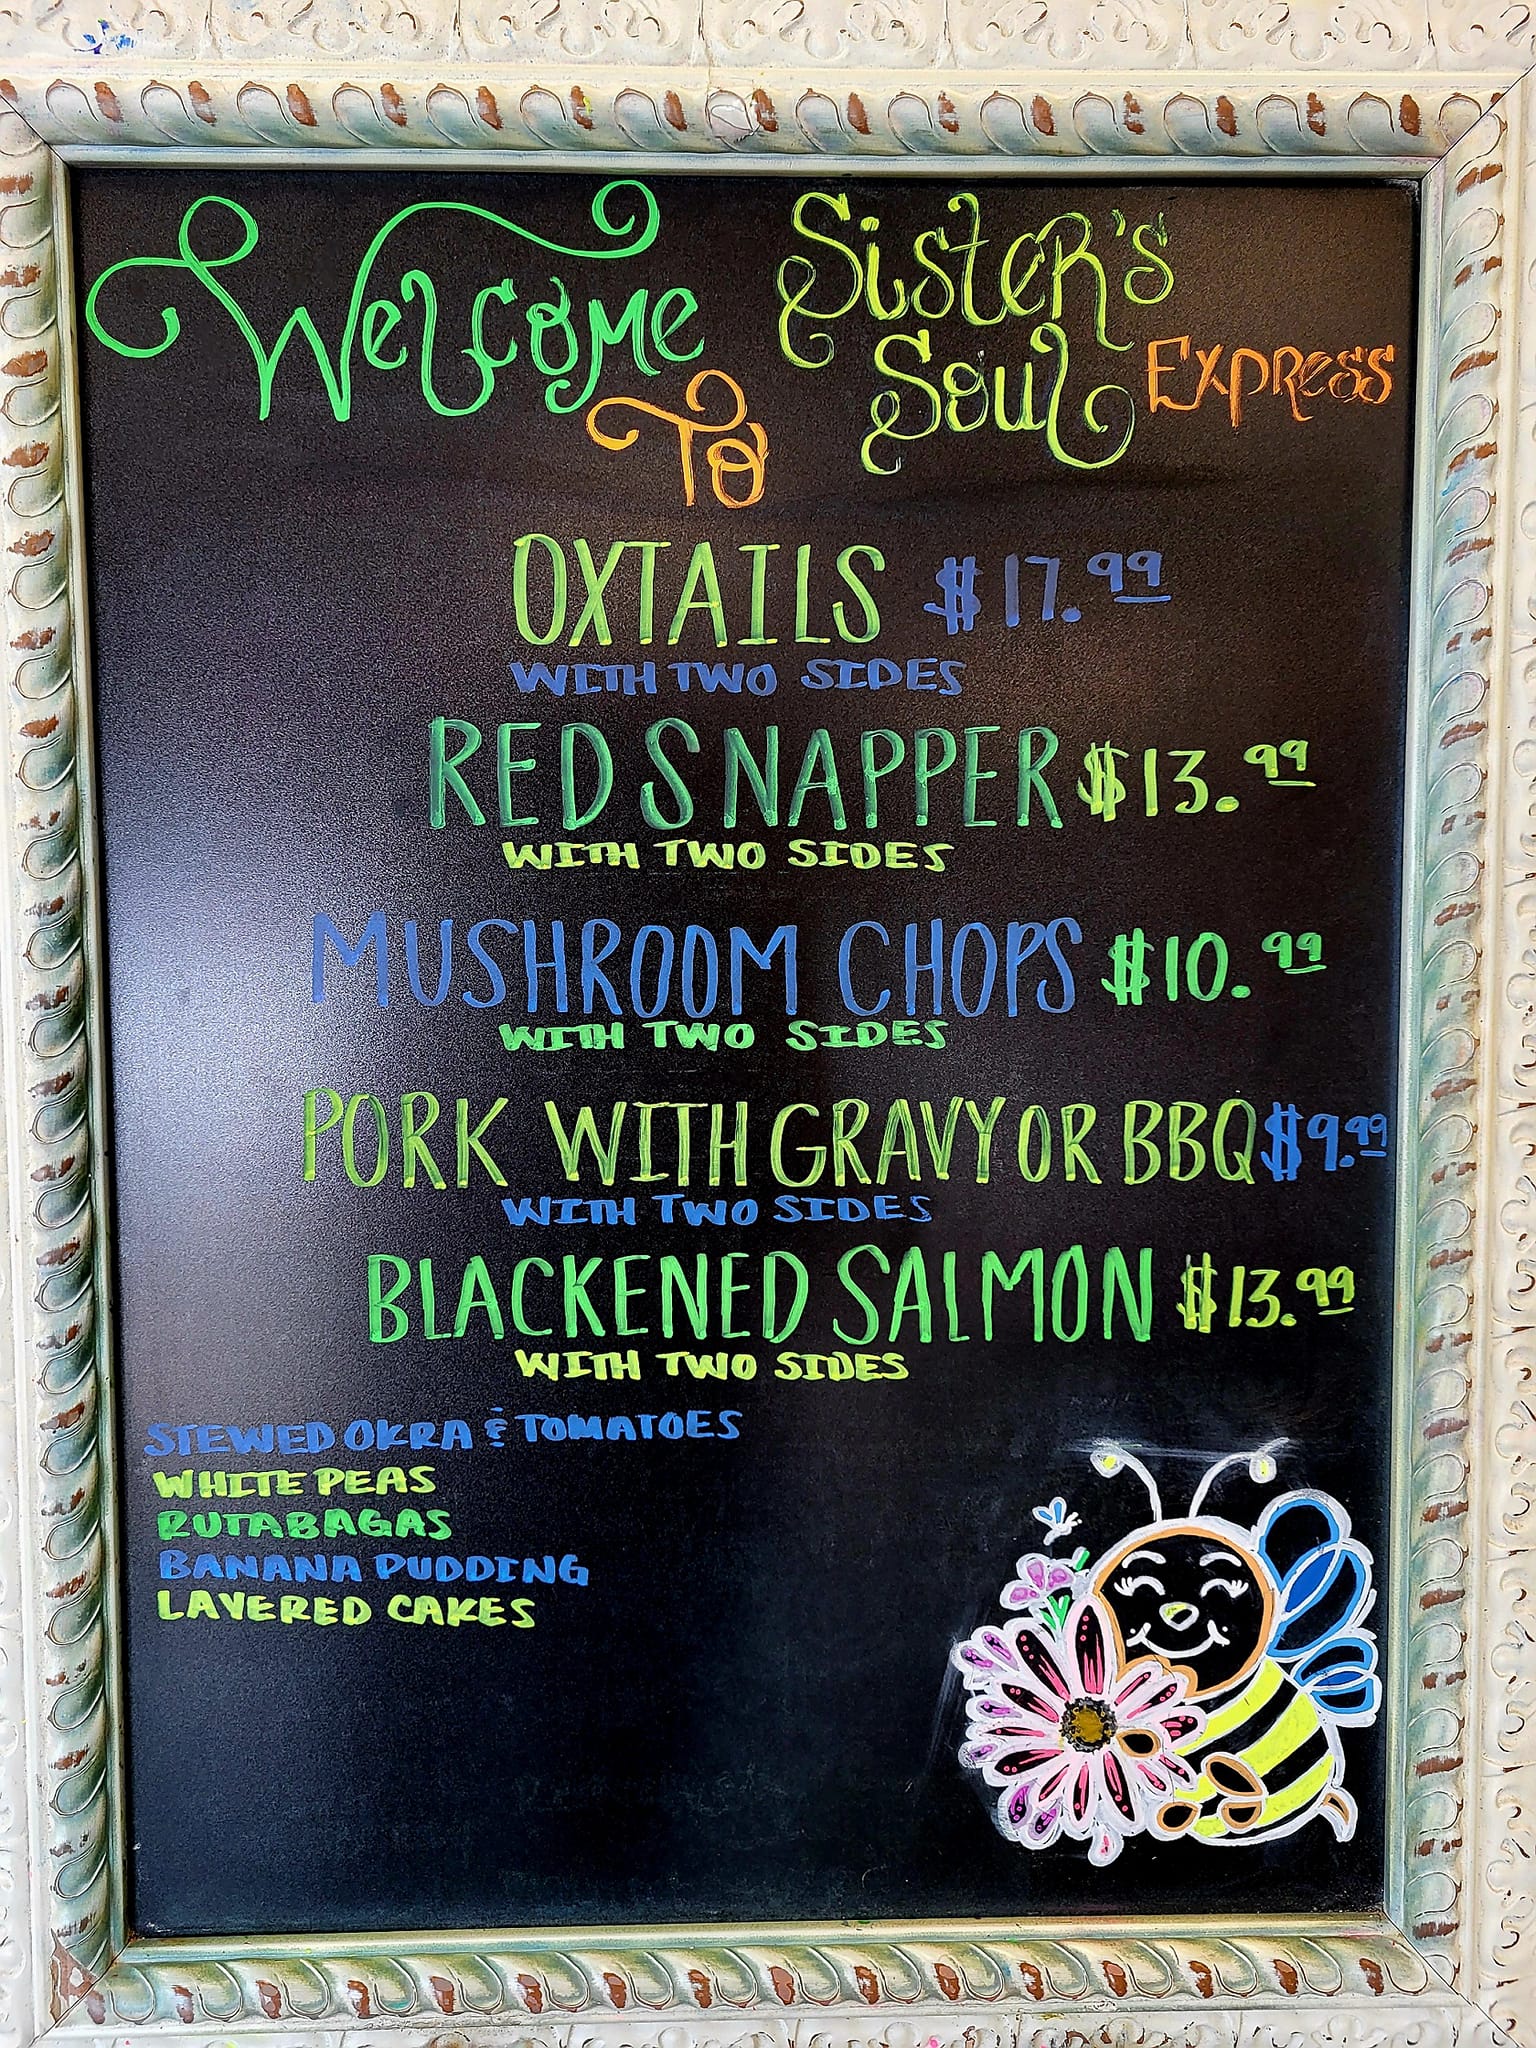 Welcome
To
Sister's
Soul Express
OXTAILS $17.99
WITH TWO SIDES
RED SNAPPER $13.99
WITH TWO SIDES
MUSHROOM CHOPS $10.99
WITH TWO SIDES
PORK WITH GRAVY OR BBQ $9.99
WITH TWO SIDES
BLACKENED SALMON $13.99
WITH TWO SIDES
STEWED OKRA & TOMATOES
WHITE PEAS
RUTABAGAS
BANANA PUDDING
LAYERED CAKES